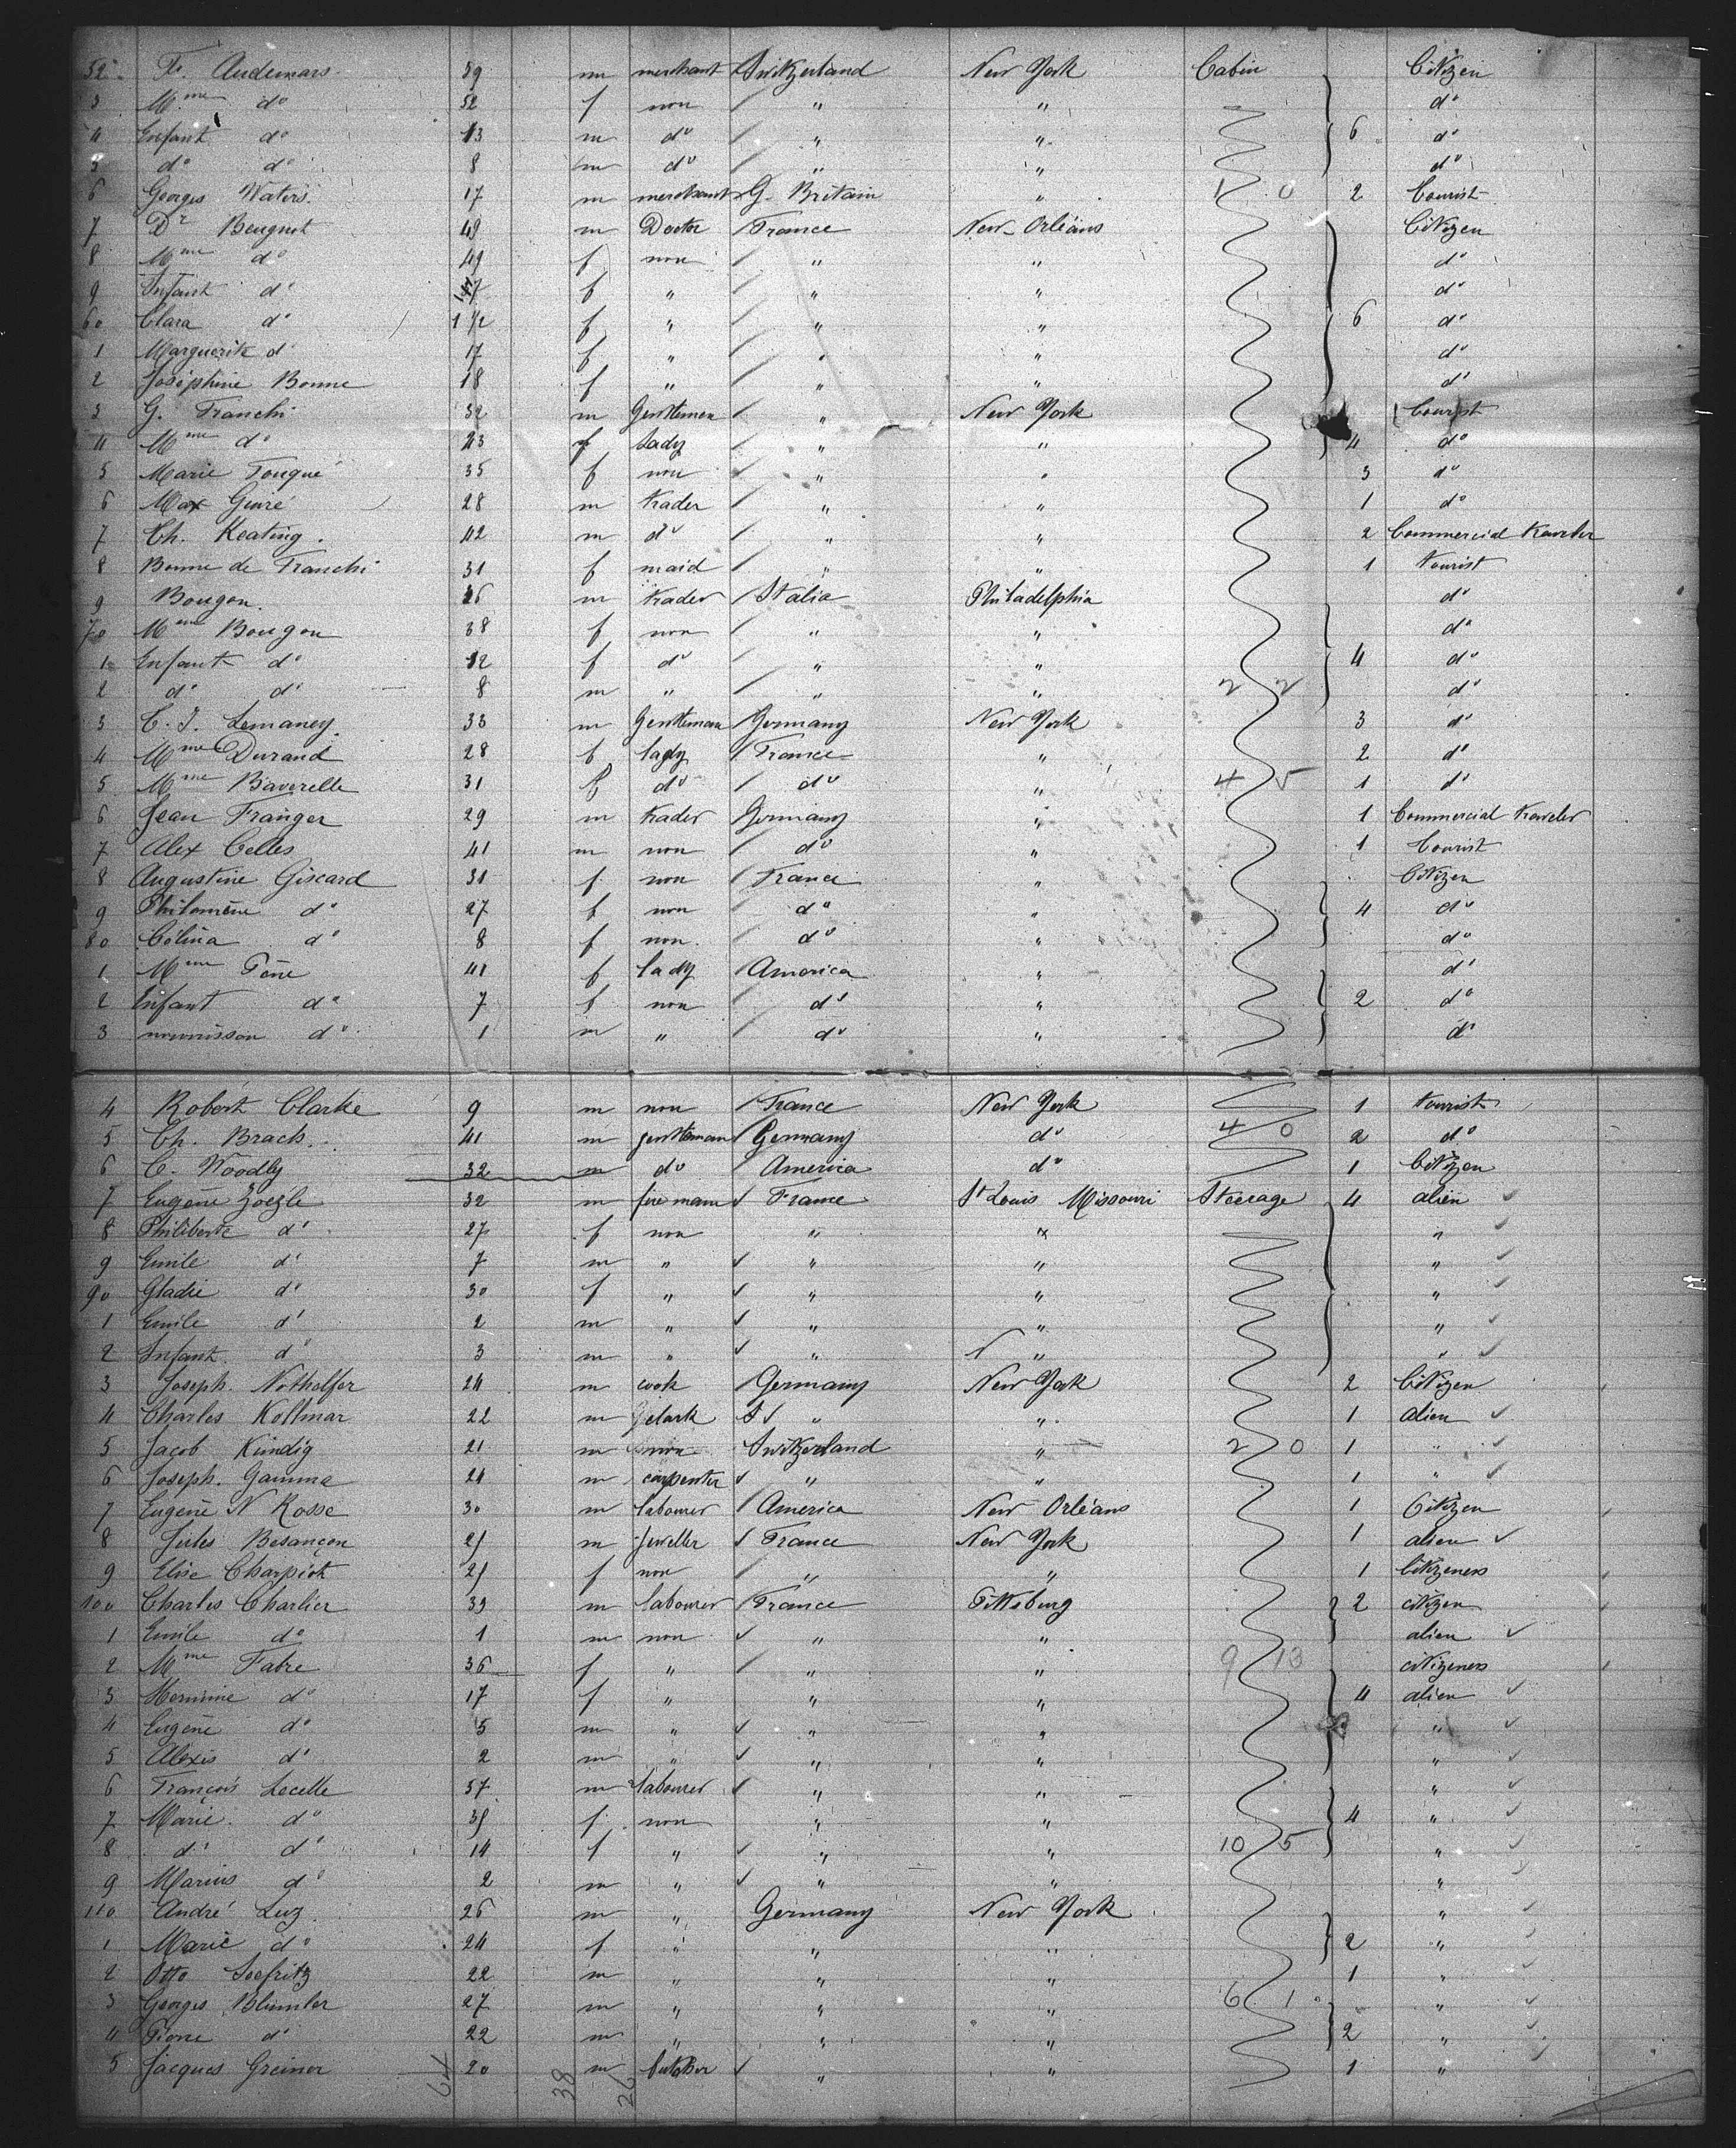 52 F. Audemars 39 m merchant Switzerland New York Cabin Citizen
3 Mme do 32 f non " " do
4 Enfant do 13 m do " " 6 do
5 do do 8 m do " " do
6 Georges Waters 17 m merchant G. Britain " 1 0 2 tourist
7 Dr Beugnot 49 m Doctor France New-Orléans Citizen
8 Mme do 49 f non " " do
9 Infant do f " " " do
60 Clara do 1 1/2 f " " " 6 do
1 Marguerite do 17 f " " " do
2 Joséphine Bonne 18 f " " " do
3 G. Franchi 32 m Gentlemen " New York tourist
4 Mme do 23 f Lady " " 4 do
5 Marie Fouqué 35 f non " " 3 do
6 Max Giuré 28 m trader " " 1 do
7 Ch. Keating. 42 m do " " 2 Commercial traveler
8 Bonne de Franchi 31 f maid " " 1 tourist
9 Bougon. m trader Italia Philadelphia do
70 Mme Bougon 38 f non " " do
1 Enfant do 12 f do " " 4 do
2 do do 8 m " " " 2 2 do
3 C. J. Lemaney. 33 m Gentleman Germany New York 3 do
4 Mme Durand 28 f lady France " 2 do
5 Mme Baverelle 31 f do do " 4 5 1 do
6 Jean Franger 29 m trader Germany " 1 Commercial traveler
7 Alex Celles 41 m non do " 1 tourist
8 Augustine Giscard 31 f non France " Citizen
9 Philomène do 27 f non do " 4 do
80 Célina do 8 f non do " do
1 Mme Pène 41 f lady America " do
2 Infant do 7 f non do " 2 do
3 nourrisson do 1 m " do " do
4 Robert Clarke 9 m non France New York 1 tourist
5 Ch. Brach. 41 m gentleman Germany do 4 0 2 do
6 C. Woodly 32 m do America do 1 Citizen
7 Eugène Zoezle 32 m fire man France St Louis Missouri Steerage 4 alien
8 Philiberte do 27 f non " " "
9 Emile do 7 m " " " "
90 Gladie do 30 f " " " "
1 Emile do 2 m " " " "
2 Infant do 3 m " " " "
3 Joseph. Nothelfer 24 m cook Germany New York 2 Citizen
4 Charles Kollmar 22 m clark " " 1 alien
5 Jacob Kündig 21 m non Switzerland " 2 0 1 "
6 Joseph. Gamma 24 m carpenter " " 1 "
7 Eugène N Rosse 30 m labourer America New Orléans 1 Citizen
8 Jules Besançon 25 m Jeweller France New York 1 alien
9 Elise Charpiot 25 f non " " 1 Citizeness
100 Charles Charlier 39 m labourer France Pittsburg 2 citizen
1 Emile do 1 m non " " alien
2 Mme Fabre 36 f " " " 9 13 citizeness
3 Hermine do 17 f " " " 4 alien
4 Eugène do 5 m " " " "
5 Alexis do 2 m " " " "
6 François Lecelle 37 m labourer " " "
7 Marie do 35 f non " " 4 "
8 do do 14 f " " " 10 5 "
9 Marius do 2 m " " " "
110 André Luz 26 m " Germany New York "
1 Marie do 24 f " " " 2 "
2 Otto Seefritz 22 m " " " 1 "
3 Georges Blümler 27 m " " " 6 1 "
4 Pierre do 22 m " " " 2 "
5 Jacques Greiner 20 m butcher " " 1 "
64 38 26